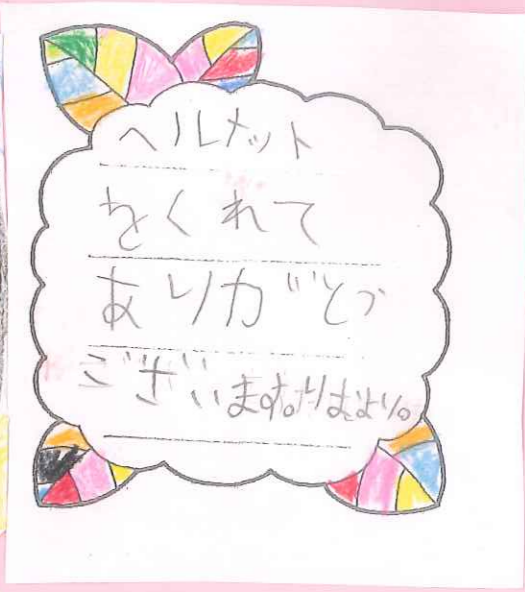 ヘルメット
をくれて
ありがとう
ございます。
より。